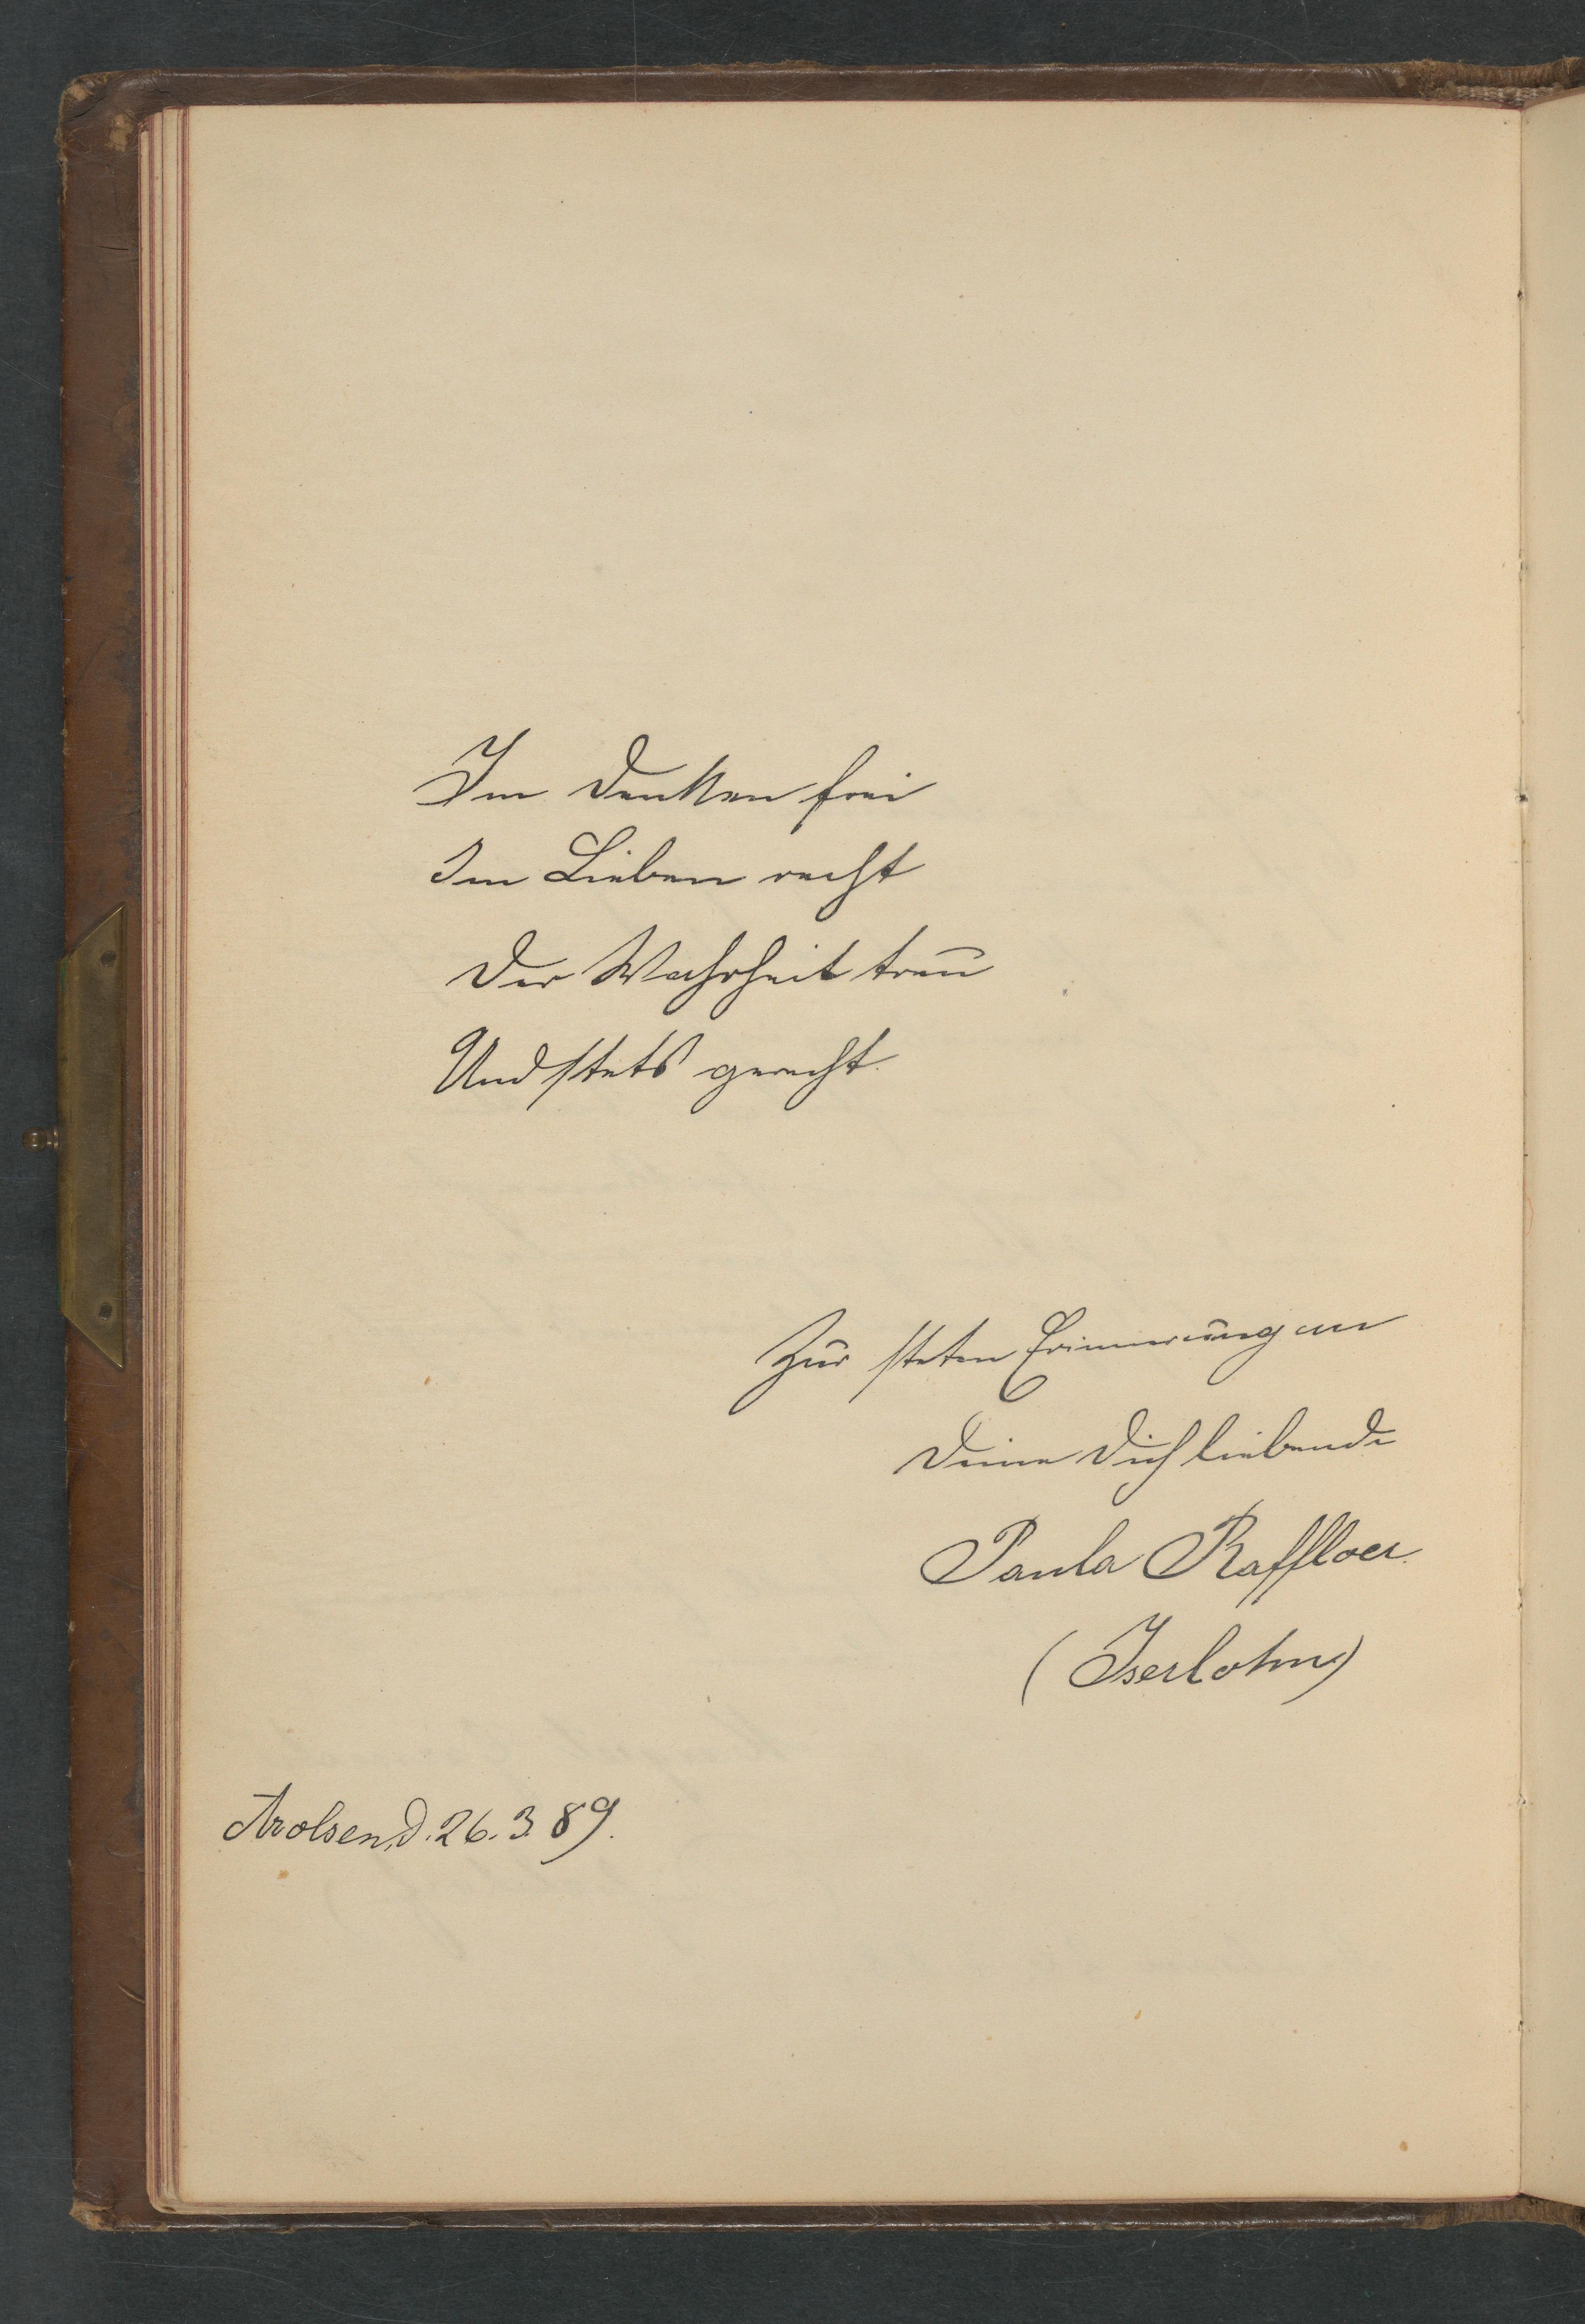 Im Denken frei
Im Lieben recht
Der Wahrheit treu
Und stets gerecht.
Zur steten Erinnerung an
Deine Dich liebende
Paula Raffloer.
(Iserlohn)
Arolsen, d. 26. 3. 89.